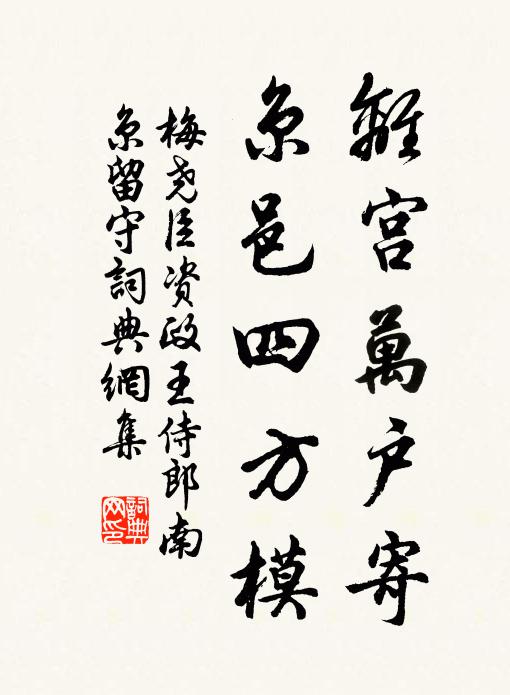 離宮萬户寄
京邑四方模
梅尧臣资政王侍郎南
京留守詞典網集
詞典
网印